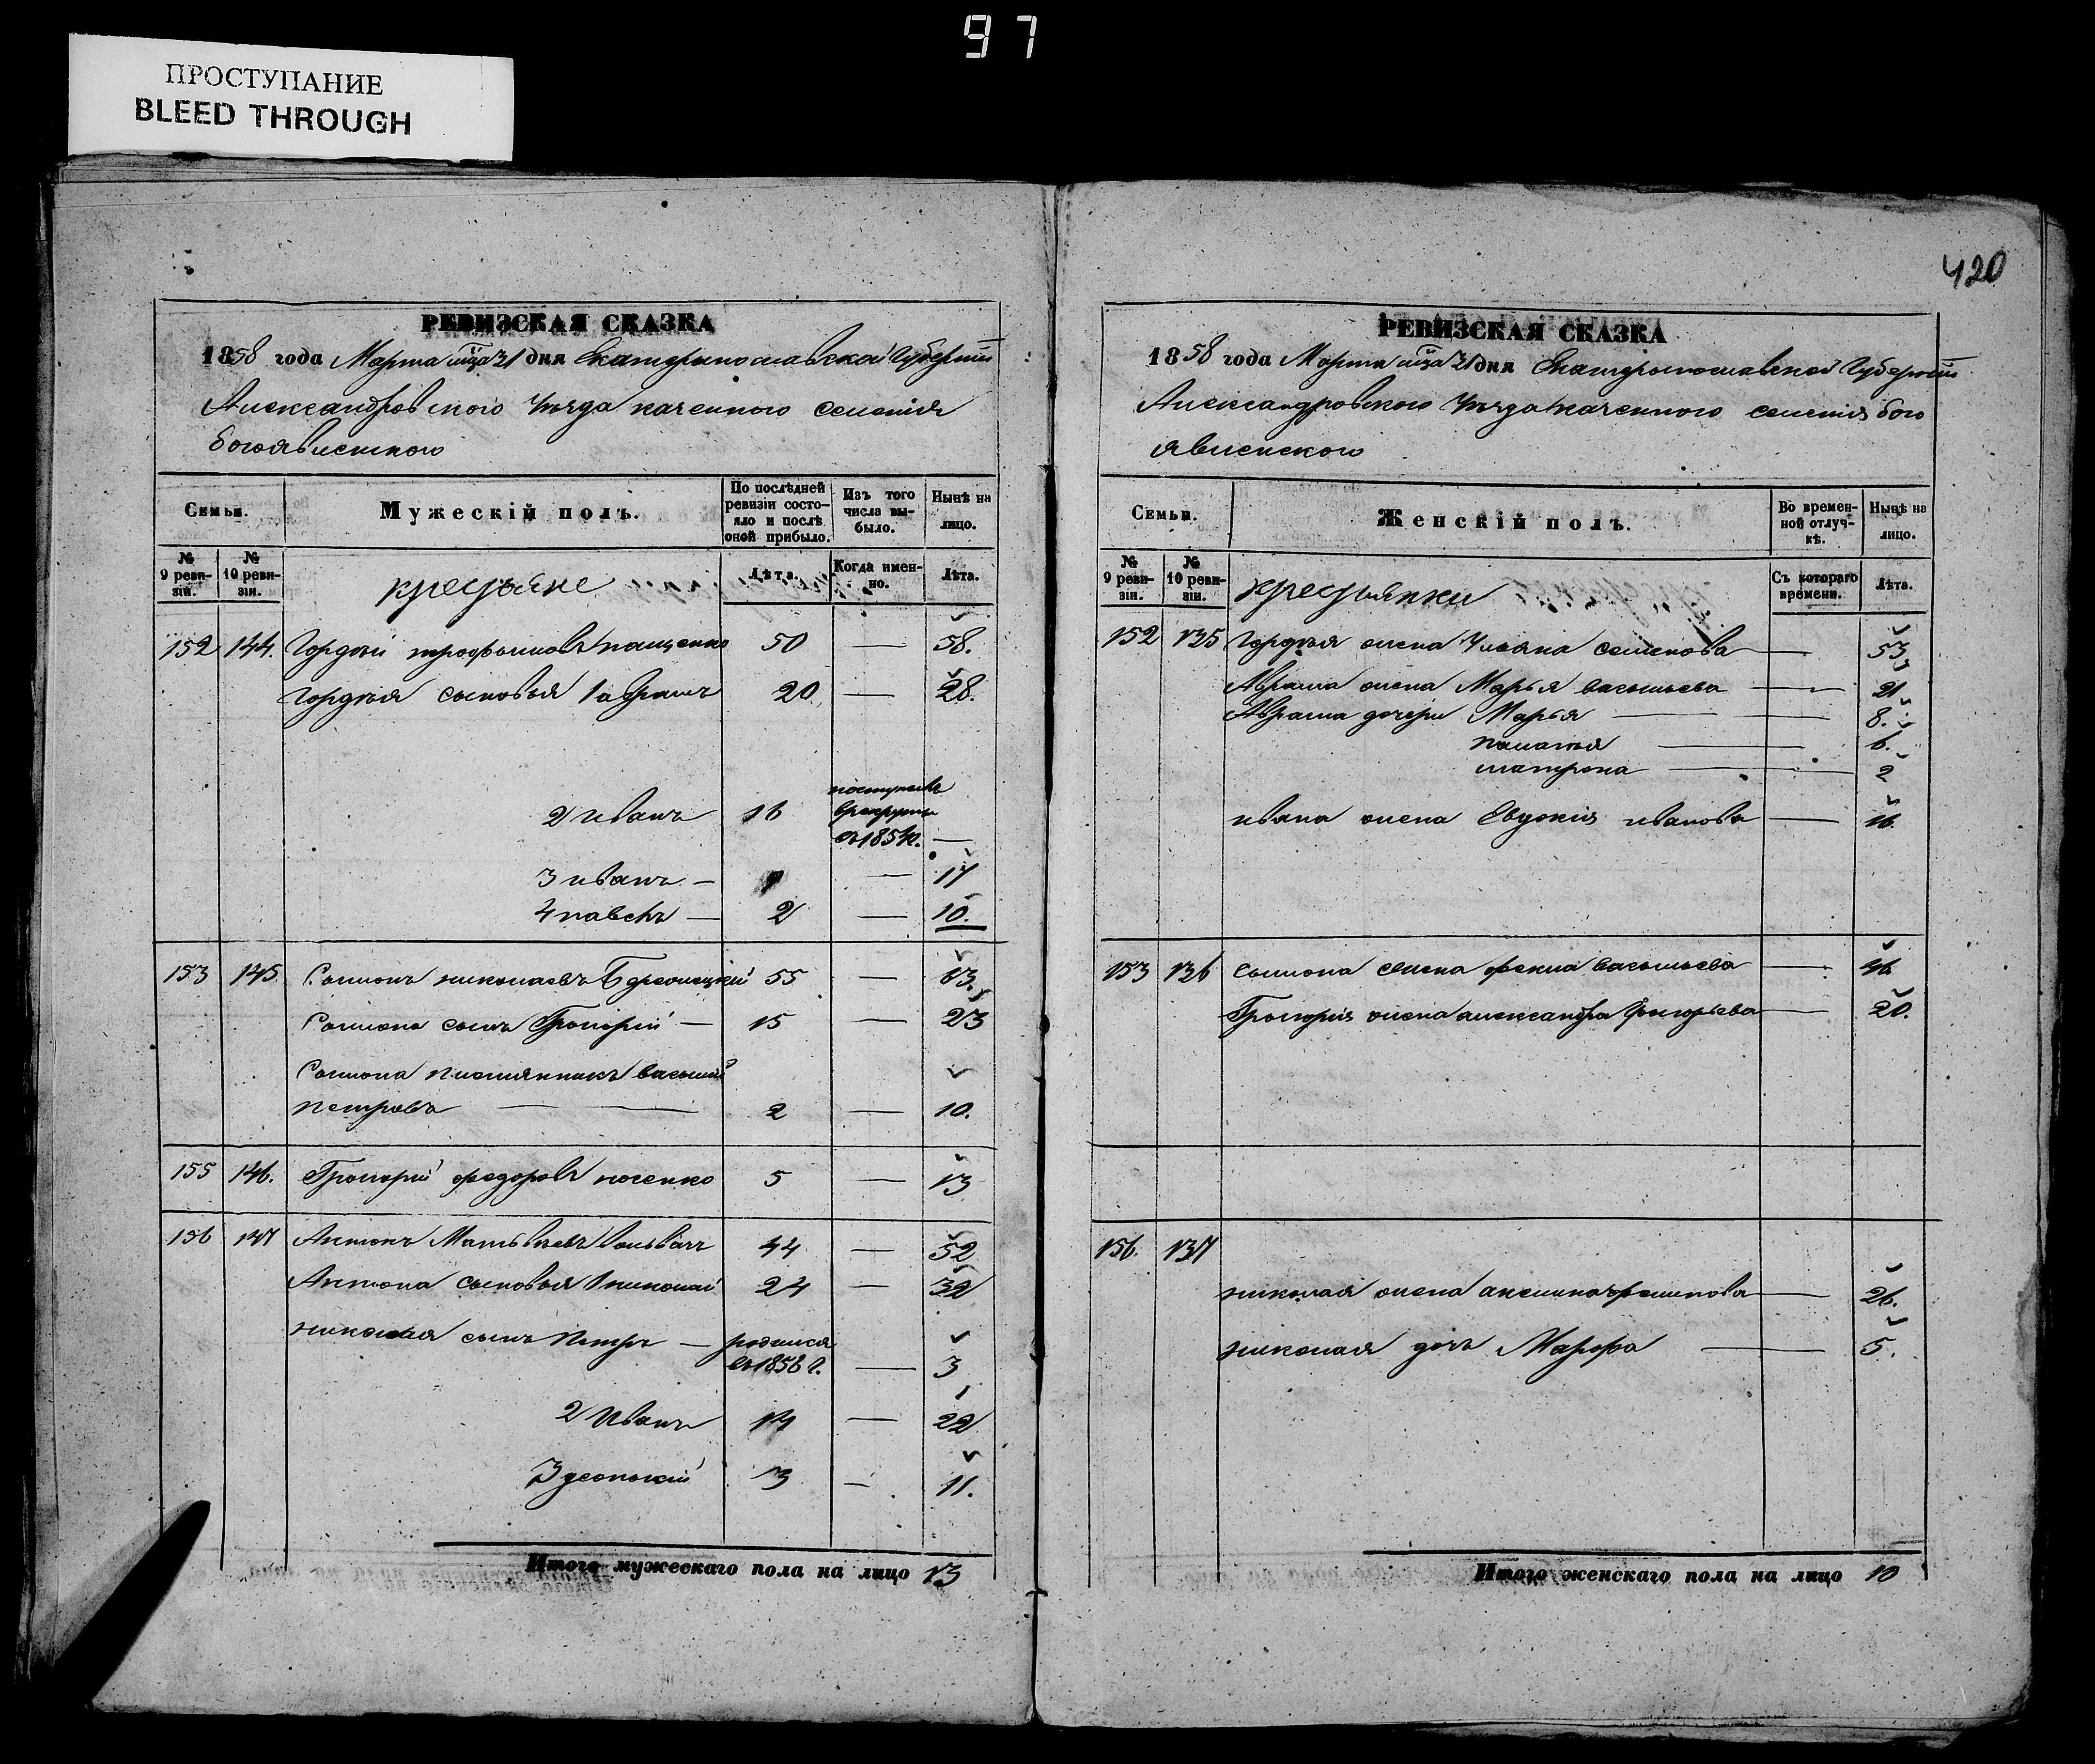 97
ПРОСТУПАНИЕ
BLEED THROUGH
РЕВИЗСКАЯ СКАЗКА
1858 года Марта мца 21 дня Екатеринославской Губернии
Александровского Уѣзда казенного селенія
богоявленского
Семьи.
Мужескій полъ.
По послѣдней ревизіи состояло и послѣ оной прибыло.
Изъ того числа выбыло.
Нынѣ на лицо.
№ 9 ревизіи.
№ 10 ревизіи.
крестьяне
Лѣта.
Когда именно.
Лѣта.
152 144. Гордѣй трофимовъ пащенко 50 — 58.
Гордѣя сыновья 1 аврамъ 20 — 28.
2 иванъ 16 поступилъ в рекруты въ 1854 г. —
3 иванъ — — 17
4 павелъ — 2 — 10.
153 145. Самионъ николаевъ 55 — 63.
Самиона сынъ Григорій — 15 — 23
Самиона племянникъ василий
петровъ — — 2 — 10.
155 146. Григорий федоровъ 5 — 13
156 147 Антонъ Матвѣевъ 44 — 52
Антона сыновья 1 николай 24 — 32
николая сынъ петръ — родился въ 1856 г. — 3
2 Иванъ 14 — 22
3 3 — 11.
Итого мужескаго пола на лицо 13
420
РЕВИЗСКАЯ СКАЗКА
1858 года Марта мца 21 дня Екатеринославской Губернии
Александровского Уѣзда казенного селенія бого
явленского
Семьи.
Женскій полъ.
Во временной отлучкѣ.
Нынѣ на лицо.
№ 9 ревизіи.
№ 10 ревизіи.
крестьянки
Съ котораго времени.
Лѣта.
152 135 Гордѣя жена Ульяна семенова — 53
Аврама жена Марья васильева — 21
Аврама дочери Марья — 8.
палагия — 6.
матрона — 2
ивана жена Евдокия иванова — 16.
153 136 Самиона жена фекла васильева — 46
Григория жена александра григорьева — 20.
156. 137
николая жена — 26.
николая дочь Марфа — 5.
Итого женскаго пола на лицо 10